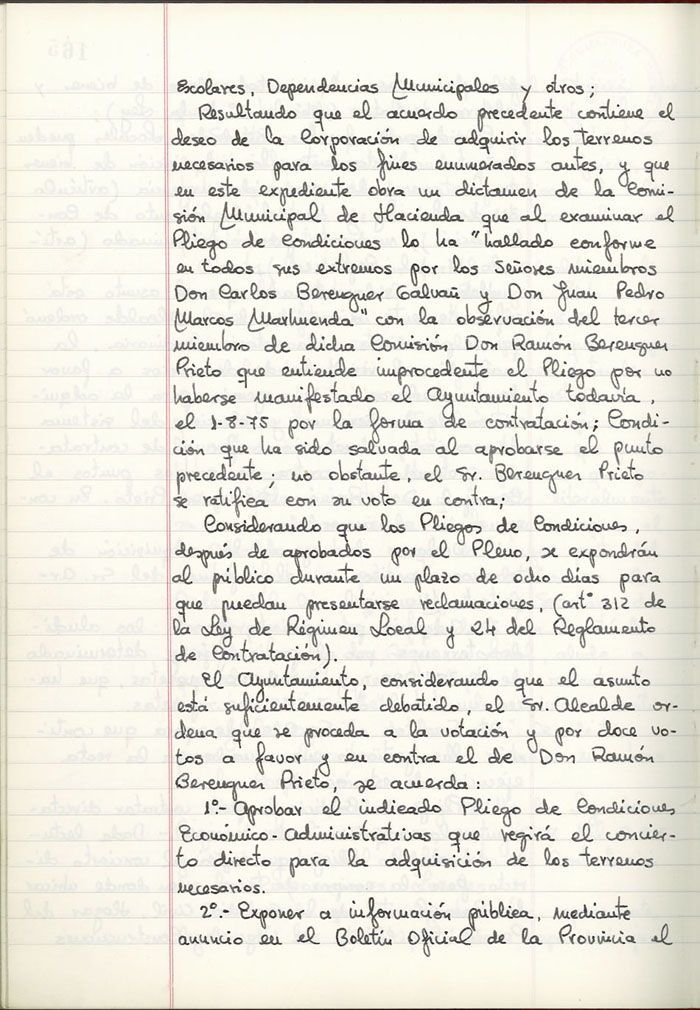 Escolares, Dependencias Municipales y otros;
Resultando que el acuerdo precedente contiene el
deseo de la Corporación de adquirir los terrenos
necesarios para los fines enumerados antes, y que
en este expediente obra un dictamen de la Comi-
sión Municipal de Hacienda que al examinar el
Pliego de Condiciones lo ha "hallado conforme
en todos sus extremos por los Señores miembros
Don Carlos Berenguer Galvañ y Don Juan Pedro
Marcos Marhuenda" con la observación del tercer
miembro de dicha Comisión Don Ramón Berenguer
Prieto que entiende improcedente el Pliego por no
haberse manifestado el Ayuntamiento todavía,
el 1-8-75 por la forma de contratación; Condi-
ción que ha sido salvada al aprobarse el punto
precedente; no obstante, el Sr. Berenguer Prieto
se ratifica con su voto en contra;
Considerando que los Pliegos de Condiciones,
después de aprobados por el Pleno, se expondrán
al público durante un plazo de ocho días para
que puedan presentarse reclamaciones, (artº 312 de
la Ley de Régimen Local y 24 del Reglamento
de Contratación).
El Ayuntamiento, considerando que el asunto
está suficientemente debatido, el Sr. Alcalde or-
dena que se proceda a la votación y por doce vo-
tos a favor y en contra el de Don Ramón
Berenguer Prieto, se acuerda:
1º.- Aprobar el indicado Pliego de Condiciones
Económico-Administrativas que regirá el concier-
to directo para la adquisición de los terrenos
necesarios.
2º.- Exponer a información pública, mediante
anuncio en el Boletín Oficial de la Provincia el